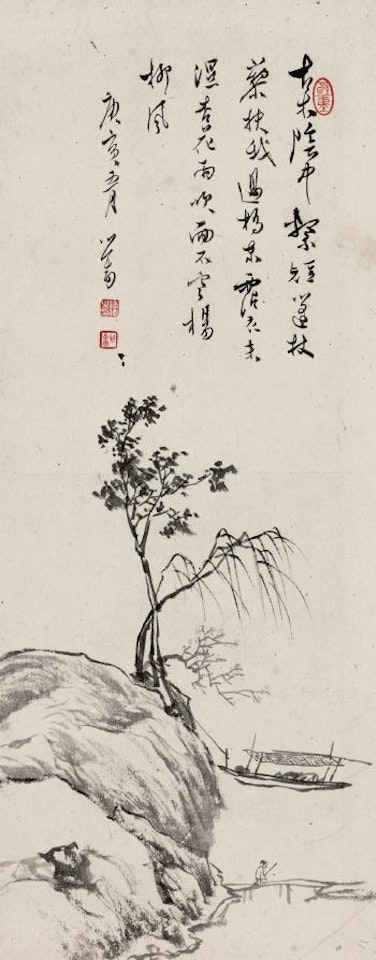 古木陰中繫短篷杖
藜扶我過橋東霑衣未
濕杏花雨吹面不寒楊
柳風
庚寅五月 心畬